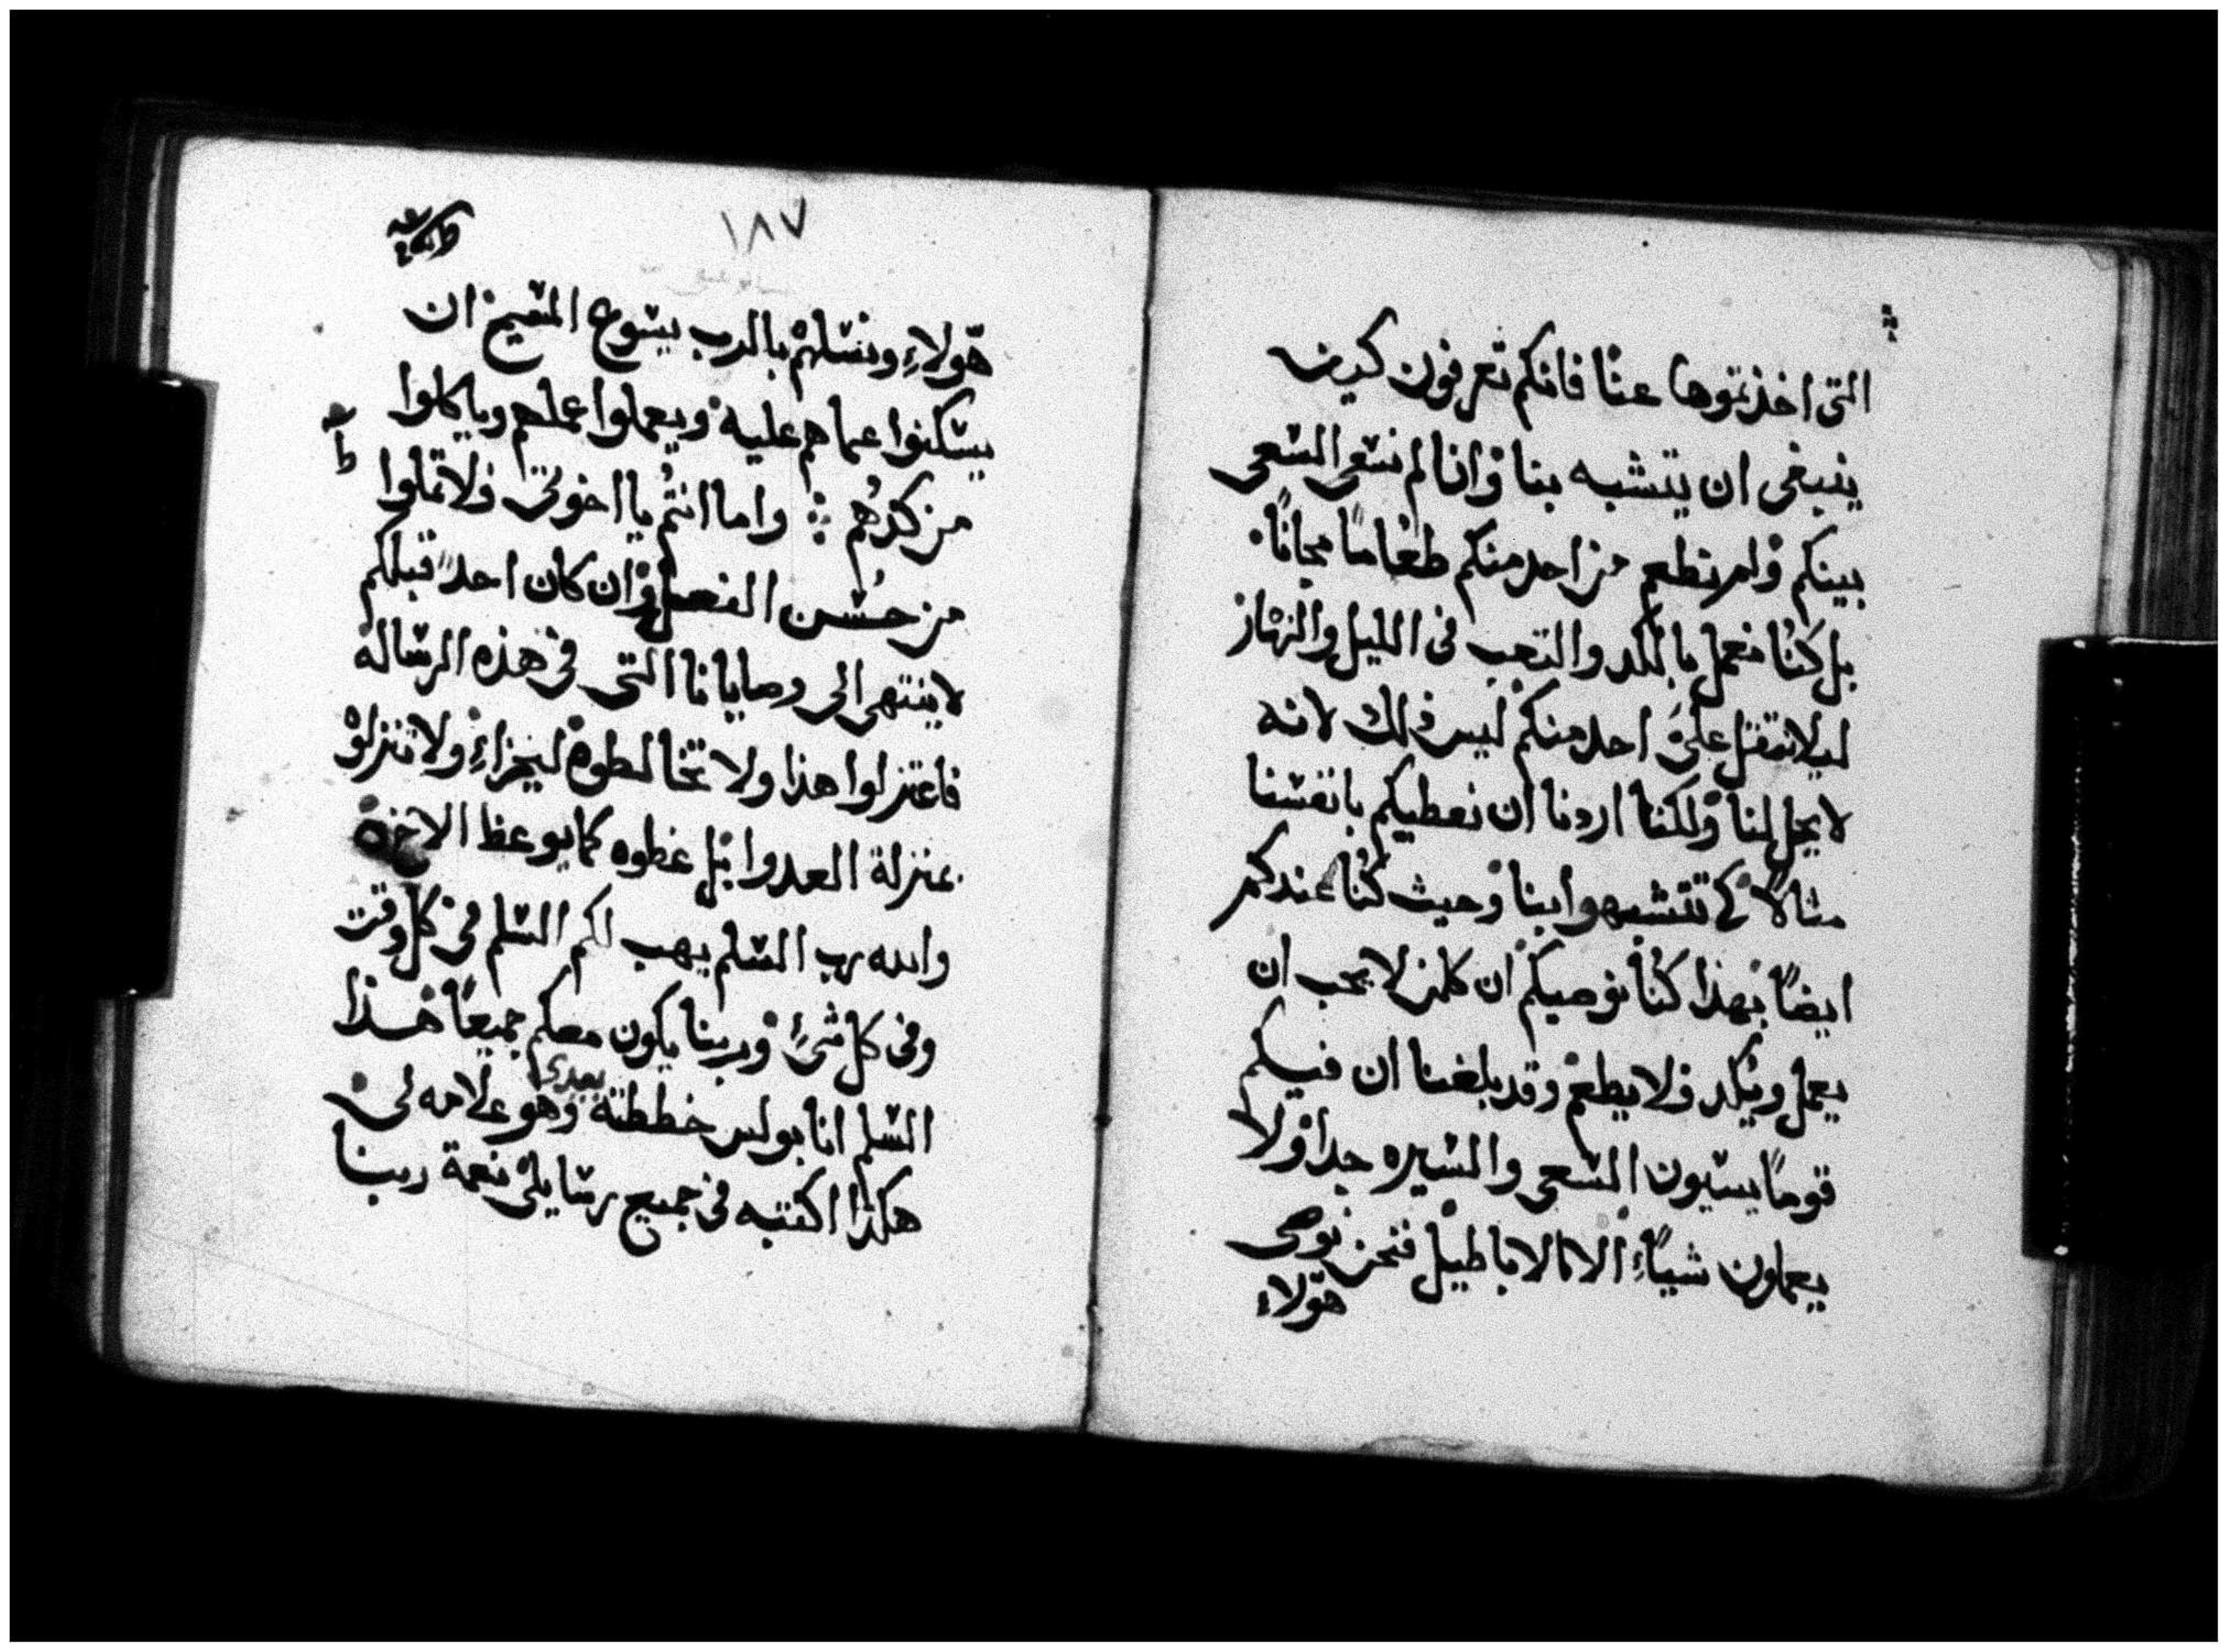 التى اخذتموها عنا فانكم تعرفون كيف
ينبغى ان يتشبه بنا وانا لم نسعى السعى
بينكم ولم نطعم من احد منكم طعاماً مجاناً.
بل كنا نعمل بالكد والتعب فى الليل والنهار
ليلا نثقل على احد منكم ليس ذلك لانه
لا يحل لنا ولكنا اردنا ان نعطيكم بانفسنا
مثالاً كى تتشبهوا بنا وحيث كنا عندكم
ايضاً بهذا كنا نوصيكم ان كلمن لا يحب ان
يعمل ويكد فلا يطعم وقد بلغنا ان فيكم
قوماً يسيون السعى والسيره جدا ولا
يعملون شياءً الا الاباطيل فنحن نوصى
هولاء
١٨٧
هولاءِ ونسلهم بالرب يسوع المسيح ان
يسكنوا عما هم عليه ويعملوا عملهم وياكلوا
من كدهم ⁘ واما انتم يا اخوتى فلا تملوا
من حسن الفعل وان كان احد قبلكم
لا ينتهى الى وصايانا التى فى هذه الرساله
فاعتزلوا هذا ولا تخالطوه ليخزاءِ ولا تنزلوه
بمنزلة العدوا بل عظوه كما يوعظ الاخوه
والله رب السلم يهب لكم السلم فى كل وقت
وفى كل شىءٍ وربنا يكون معكم جميعاً هذا
السلم انا بولس خططته بيدى وهو علامه لى
هكذا اكتبه فى جميع رسايلى نعمة ربنا